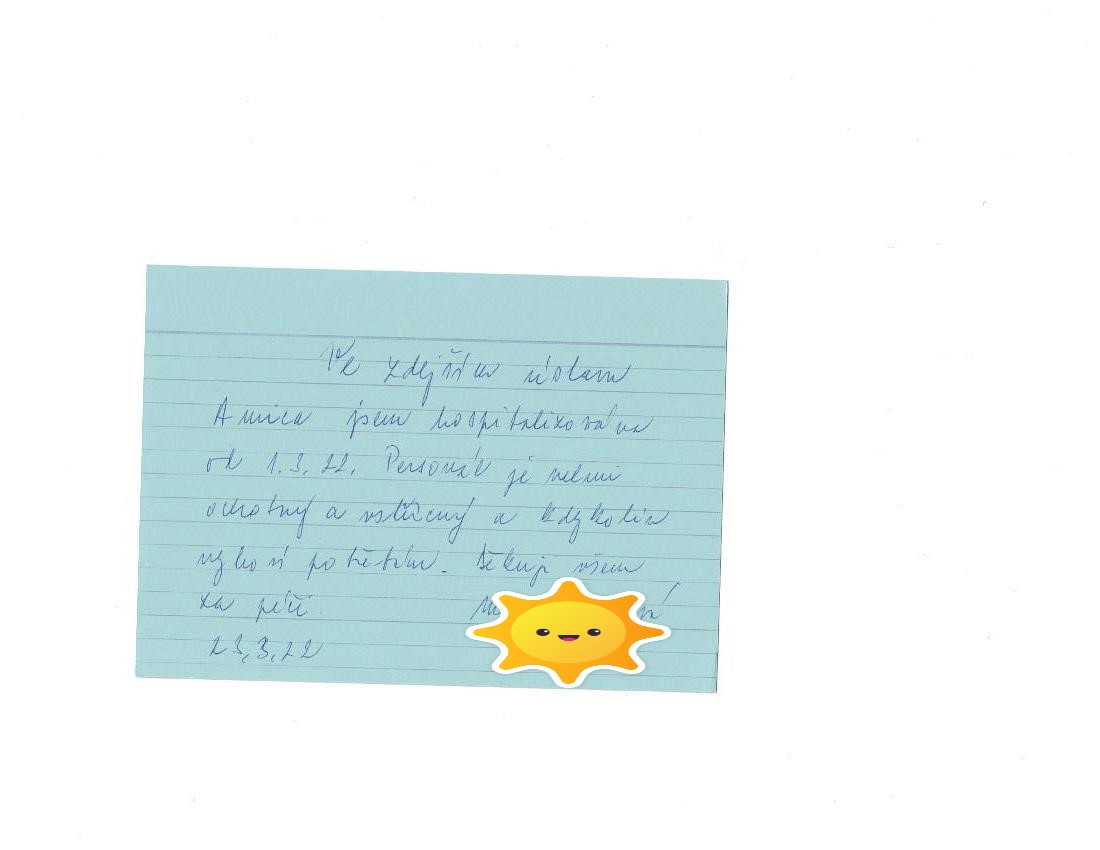 Ve zdejším ústavu
Amica jsem hospitalizována
od 1.3.22. Personál je velmi
ochotný a vstřícný a kdykoliv
vyhoví potřebám. Děkuji všem
za péči.
23.3.22